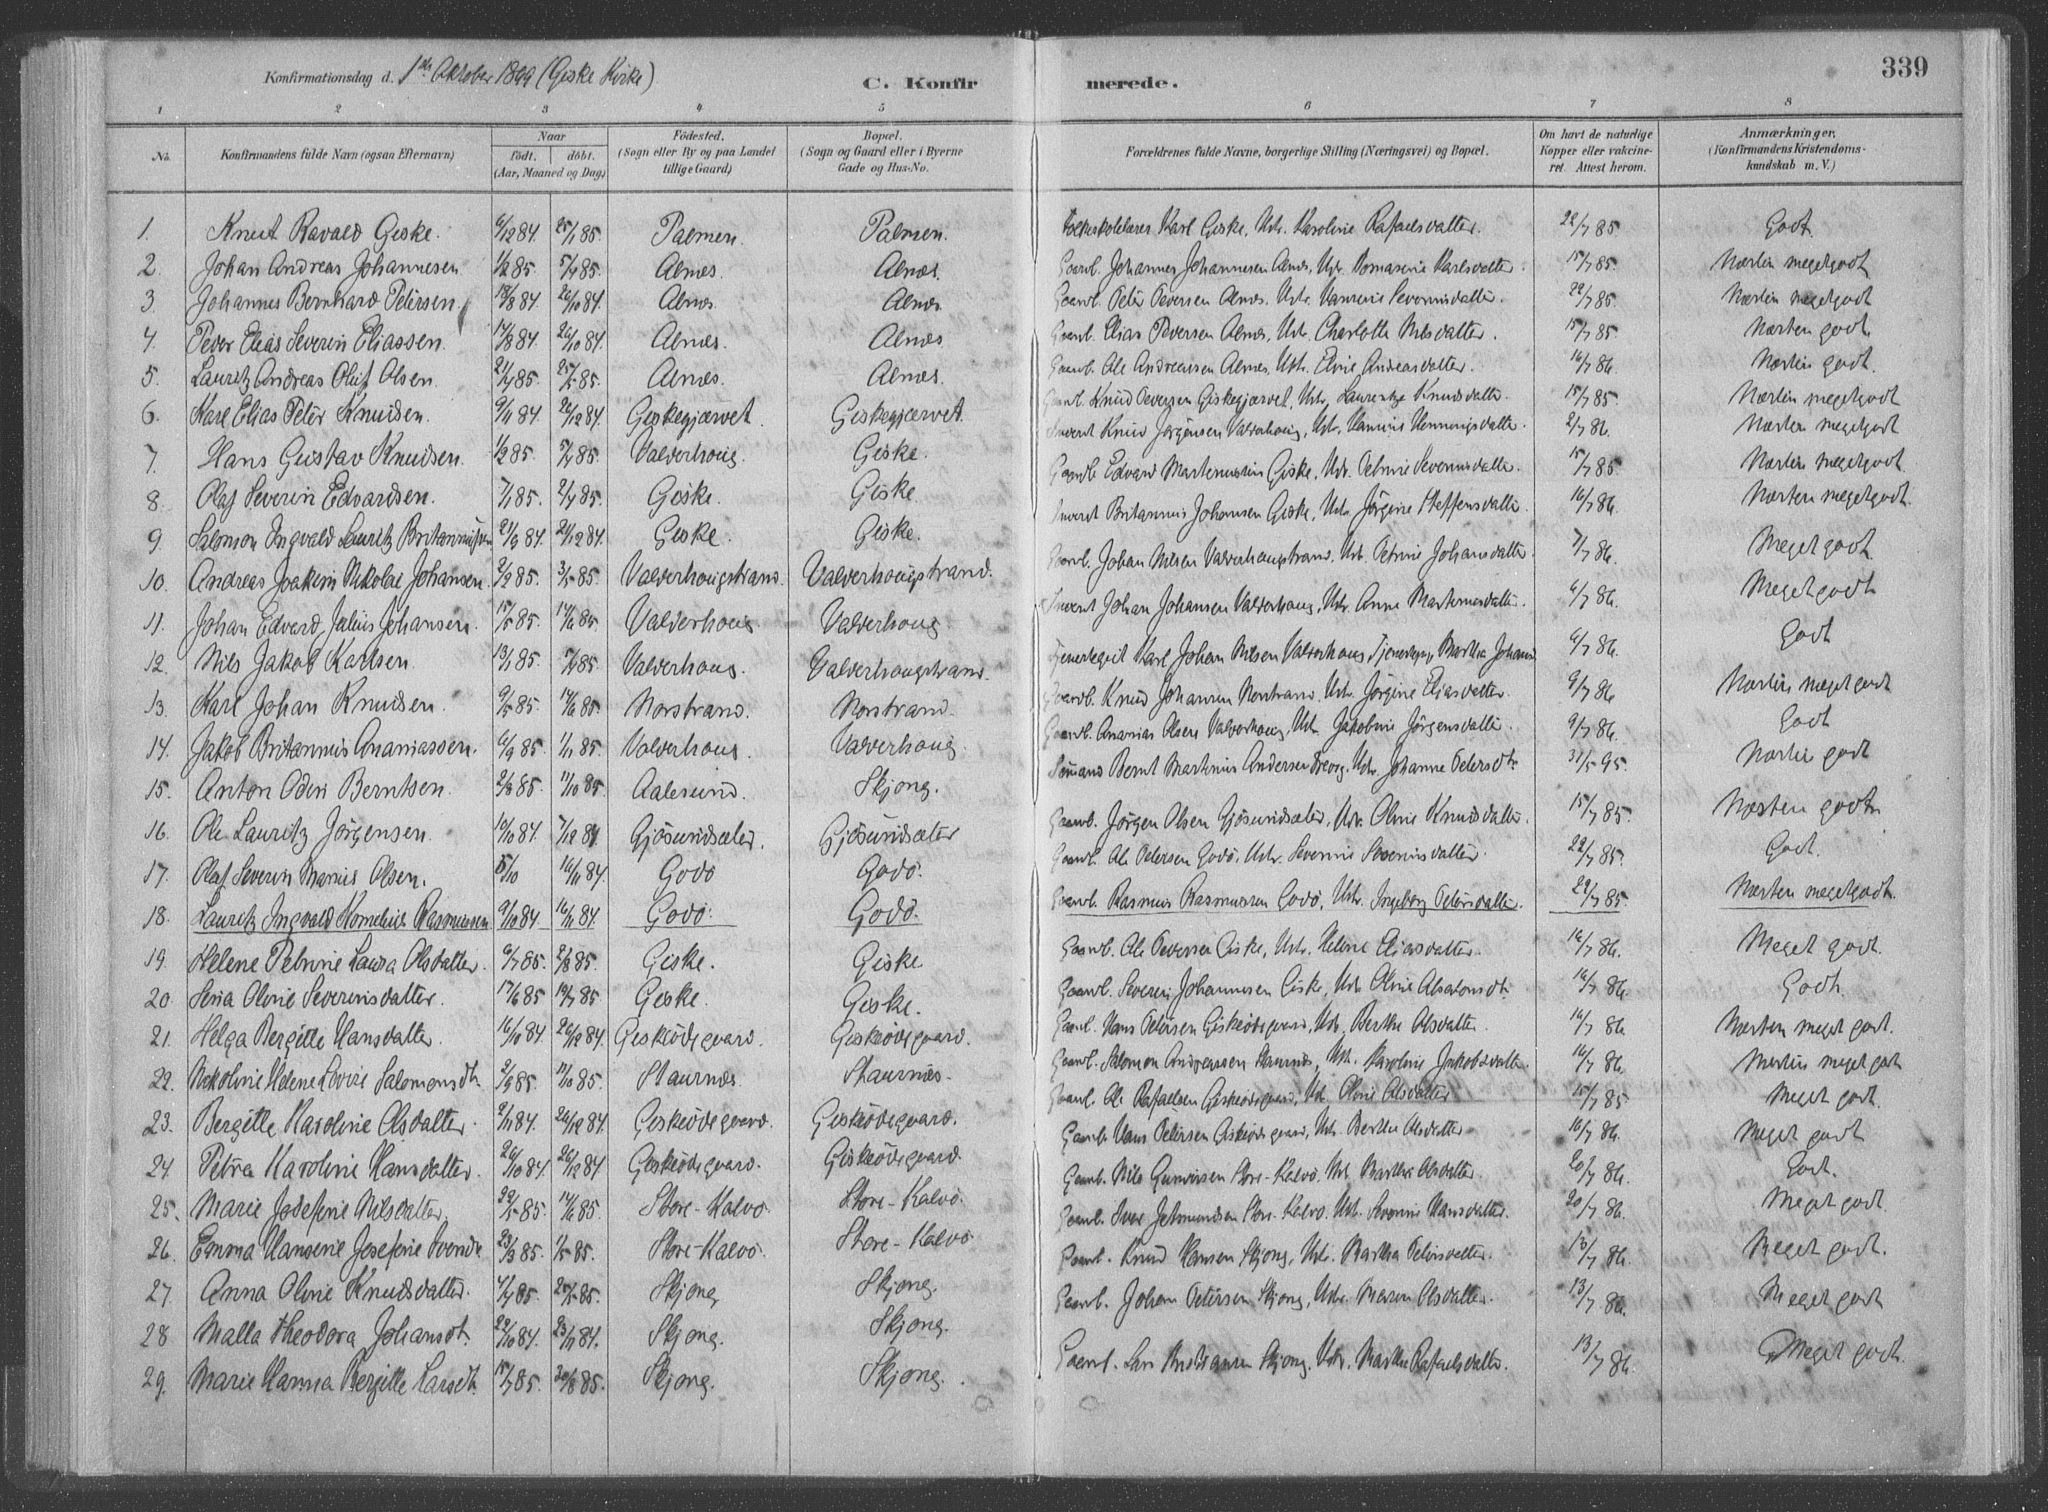 Konfirmationsdag d. 1ste Oktober 1899 (Giske Kirke)
C. Konfirmerede.
339
1 2 3 4 5 6 7 8
No.
Konfirmandens fulde Navn (ogsaa Efternavn)
Naar
födt. döbt.
(Aar, Maaned og Dag)
Födested.
(Sogn eller By og paa Landet tillige Gaard)
Bopæl.
(Sogn og Gaard eller i Byerne Gade og Hus-No.
Forældrenes fulde Navne, borgerlige Stilling (Næringsvei) og Bopæl.
Om havt de naturlige Kopper eller vakcineret. Attest herom.
Anmærkninger.
(Konfirmandens Kristendomskundskab m. V.)
1. Knut Ravald Giske. 6/12 84. 25/1 85. Palmen. Palmen. Karl Giske, Karoline Rafaelsdatter. 22/7 85 Godt.
2 Johan Andreas Johannesen 1/2 85. 5/4 85. Alnæs. Alnæs. Gaarb. Johannes Johannesen Alnæs, Karlsdatter. 15/7 85. Næsten meget godt
3 Johannes Bernhard Petersen. 26/10 84. Alnæs. Alnæs. Gaarb. Peter Pedersen Alnæs, Hst. 22/7 85. Næsten meget godt.
4. Peder Elias Severin Eliassen. 17/8 84. 26/10 84. Alnæs. Alnæs. Gaarb. Elias Pedersen Alnæs, Hst. Charlotte Nilsdatter. 15/7 85. Næsten godt.
5. Lauritz Andreas Oluf Olsen. 21/4 85. 25/5 85. Alnæs. Alnæs. Gaarb. Ole Andreassen Alnæs, Hst. Andreasdatter. 16/7 86. Næsten godt.
6. Karl Elias Peter Knudsen. 9/11 84. 26/12 84. Giskegjærvet. Giskegjærvet. Gaarb. Knud Pedersen Giskegjærvet, Knudsdatter. 15/7 85. Næsten meget godt
7. Hans Gustav Knudsen. 1/2 85. 5/4 85. Valderhoug. Giske. Knud Jørgensen Valderhoug, Henningsdatter. 2/7 86. Næsten meget godt
8 Olaf Severin Edvardsen. 7/1 85. 2/4 85. Giske. Giske. Gaarb. Edvard Giske, Severinsdatter. 15/7 85 Næsten meget godt
9. Salomon Ingvald Lauritz 21/9 84. 21/12 84. Giske. Giske. Johansen Giske, Jørgine Steffensdatter. 16/7 86. Næsten meget godt.
10. Andreas Joakim Nikolai Johansen. 2/2 85. 3/5 85. Valderhougstrand. Valderhougstrand. Gaarb. Johan Nilsen Valderhougstrand. Petrine Johansdatter. 7/7 86. Meget godt.
11. Johan Edvard Julius Johansen. 15/5 85. 14/6 85. Valderhoug Valderhoug Johan Johansen Valderhoug, Anne 6/7 86. Meget godt
12. Nils Jakob Karlsen 13/1 85. Valderhoug. Valderhougstrand. Karl Johan Nilsen Valderhoug, Martha 6/7 86. Godt
13. Karl Johan Knudsen. 9/5 85. 14/6 85. Norstrand. Norstrand. Gaarb. Knud Johansen Norstrand. Jørgine Eliasdatter. 9/7 86 Næsten meget godt
14. Jakob Britannus Ananiassen. 6/9 85. 1/11 85. Valderhoug. Valderhoug. Gaarb. Ananias Olsen Valderhoug, Jakobine Jørgensdatter. 9/7 86. Godt
15. Anton Odin Berntsen. 2/8 85. 11/10 85. Aalesund. Skjong. Bernt Martinus Andersen Johanne Petersdtr. 31/5 95. Næsten godt
16. Ole Lauritz Jørgensen. 10/10 84. 7/12 84 Gjösundsæter. Gjösundsæter Gaarb. Jørgen Olsen Gjösundsæter, Oline Knudsdatter. 15/7 85. Næsten godt.
17. Olaf Severin Marius Olsen. 5/10 16/11 84. Godö Godö. Gaarb. Ole Petersen Godö, 22/7 85. Godt.
18. Lauritz Ingvald Kornelius Rasmussen 9/10 84 16/11 84 Godö. Godö. Gaarb. Rasmus Rasmussen Godö, Ingeborg Petersdatter. 22/7 85. Næsten meget godt.
19. Helene Petrine Laura Olsdatter. 6/7 85. 2/8 85. Giske. Giske. Gaarb. Ole Pedersen Giske, Eliasdatter. 16/7 86. Meget godt.
20 Oline Severinsdatter. 17/6 85 19/7 85. Giske. Giske. Gaarb. Severin Johannesen Giske, Oline 16/7 86. Godt.
21. Helga Bergitte Hansdatter. 16/10 84 26/12 84. Giskeödegaard. Giskeödegaard. Gaarb. Hans Petersen Giskeödegaard, Berthe Olsdatter. 16/7 86. Næsten meget godt.
22. Nikoline Helene Lovise Salomonsdtr. 2/9 85. 11/10 85. Staurnæs. Staurnæs. Gaarb. Salomon Andreassen Staurnæs, Karoline Jakobsdatter. 16/7 86. Næsten meget godt
23. Bergitte Karoline Olsdatter. 2/11 84. 26/12 84. Giskeödegaard. Giskeödegaard. Gaarb. Ole Rafaelsen Giskeödegaard, Oline Olsdatter 15/7 85 Meget godt.
24. Petra Karoline Hansdatter. 26/10 84. 26/12 84 Giskeödegaard. Giskeödegaard Gaarb. Hans Petersen Giskeödegaard, Berthe Olsdatter 16/7 86. Meget godt
25. Marie Josefine Nilsdatter. 22/5 85. 14/6 85. Store-Kalvö. Store-Kalvö. Gaarb. Nils Store-Kalvö, Marthe Olsdatter 20/7 86. Godt.
26. Emma Hansine Josefine 23/3 85. 1/5 85. Store-Kalvö. Store-Kalvö Gaarb. Store-Kalvö. Hansdatter. 20/7 86. Meget godt
27. Anna Oline Knudsdatter. 4/4 85. 25/5 85. Skjong. Skjong. Gaarb. Knud Hansen Skjong, Martha Petersdatter. 13/7 86. Meget godt.
28 Malla Theodora Johansdt. 22/10 84. 23/11 84. Skjong. Skjong. Gaarb. Johan Petersen Skjong, Maren Olsdatter. 13/7 86. Meget godt
29. Marie Hanna Bergitte Larsdt. 15/7 85. 30/8 85. Skjong. Skjong. Gaarb. Skjong, Marthe Rafaelsdatter. 13/7 86. Meget godt.